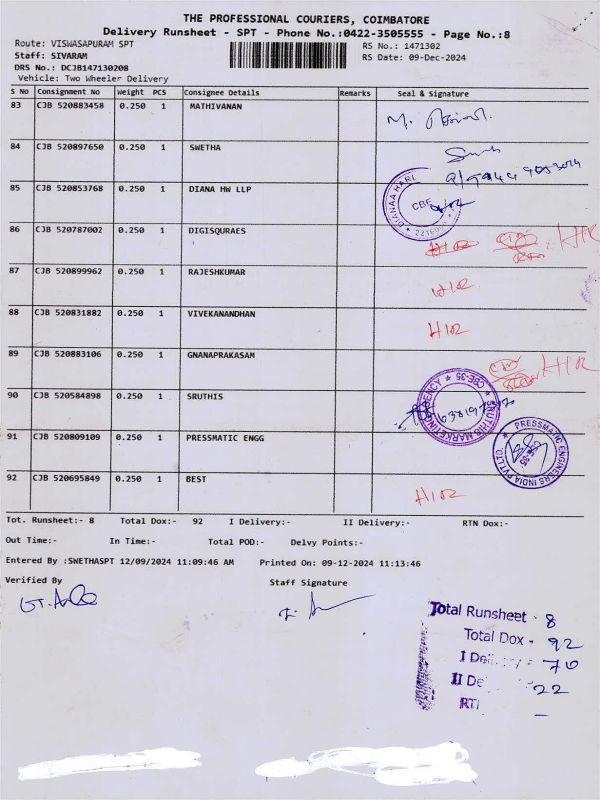 THE PROFESSIONAL COURIERS, COIMBATORE
Delivery Runsheet - SPT - Phone No.:0422-3505555 - Page No.:8
Route: VISWASAPURAM SPT
RS No.: 1471302
Staff: SIVARAM
RS Date: 09-Dec-2024
DRS No.: DCJB147130208
Vehicle: Two Wheeler Delivery
S No Consignment No Weight PCS Consignee Details Remarks Seal & Signature
83 CJB 520883458 0.250 1 MATHIVANAN
84 CJB 520897650 0.250 1 SWETHA
85 CJB 520853768 0.250 1 DIANA HW LLP
DIANAA HARL
CBE
86 CJB 520787002 0.250 1 DIGISQURAES
87 CJB 520899962 0.250 1 RAJESHKUMAR
88 CJB 520831882 0.250 1 VIVEKANANDHAN
89 CJB 520883106 0.250 1 GNANAPRAKASAM
90 CJB 520584898 0.250 1 SRUTHIS
SRUTHIS MARKETING AGENCY ★ CBE-35 ★
91 CJB 520809109 0.250 1 PRESSMATIC ENGG
PRESSMATIC ENGINEERS INDIA PVT.LTD.
92 CJB 520695849 0.250 1 BEST
Tot. Runsheet:- 8 Total Dox:- 92 I Delivery:- II Delivery:- RTN Dox:-
Out Time:- In Time:- Total POD:- Delvy Points:-
Entered By :SWETHASPT 12/09/2024 11:09:46 AM Printed On: 09-12-2024 11:13:46
Verified By Staff Signature
Total Runsheet - 8
Total Dox - 92
I Delivery - 70
II De 22
RTI -